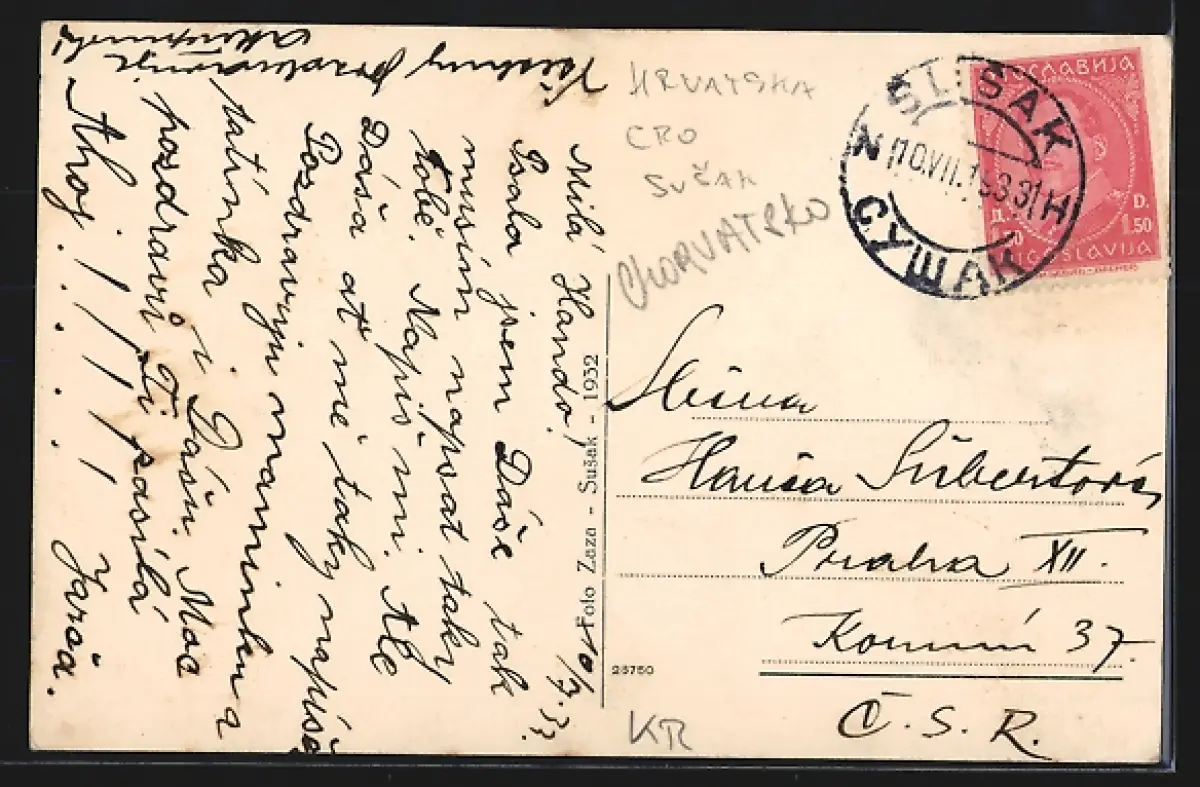 10/7.33.
Milá Hando!
Psala jsem Dáše tak
musím napsat taky
tobě. Napiš mi. Ale
Dáša ať mě taky napíše
Pozdravuju maminku a
tatínka i Dášu. Moc
pozdravů Ti posílá
Ahoj!!!!! Jarča.
HRVATSKA
CRO
SUŠAK
CHORVATSKO
Foto Zaza - Sušak - 1932
23750
KR
SUŠAK
10.VII.1933
СУШАК
ЈУГОСЛАВИЈА
Д. D.
1.50 1.50
JUGOSLAVIJA
Slečna
Praha XII.
37.
Č.S.R.